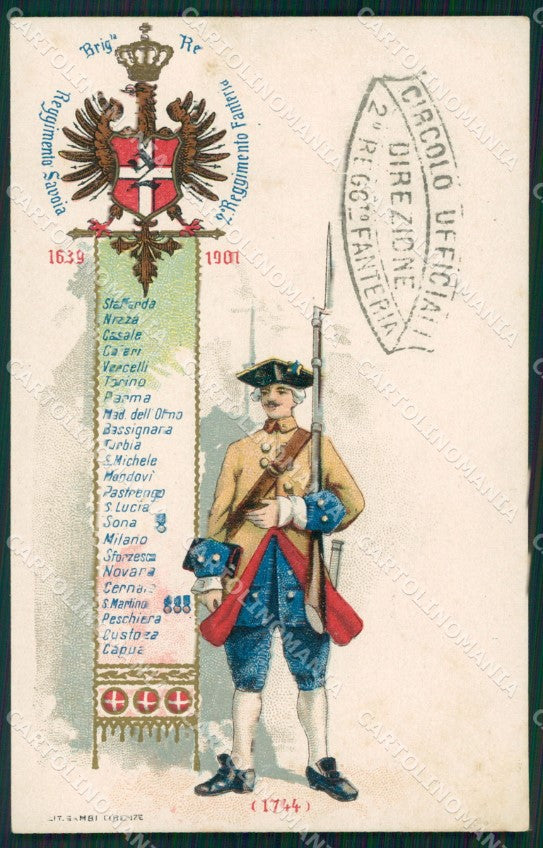 Brig.ta Re
Reggimento Savoia
2º Reggimento Fanteria
1639 1901
Staffarda
Nizza
Casale
Calieri
Vercelli
Torino
Parma
Mad. dell'Olmo
Bassignara
Turbia
S. Michele
Mondovi
Pastrengo
S. Lucia
Sona
Milano
Sforzesca
Novara
S. Martino
Peschiera
Custoza
Capua
(1744)
LIT. GAMBI FIRENZE
CIRCOLO UFFICIALI
DIREZIONE
2º REGG.TO FANTERIA
CARTOLINOMANIA